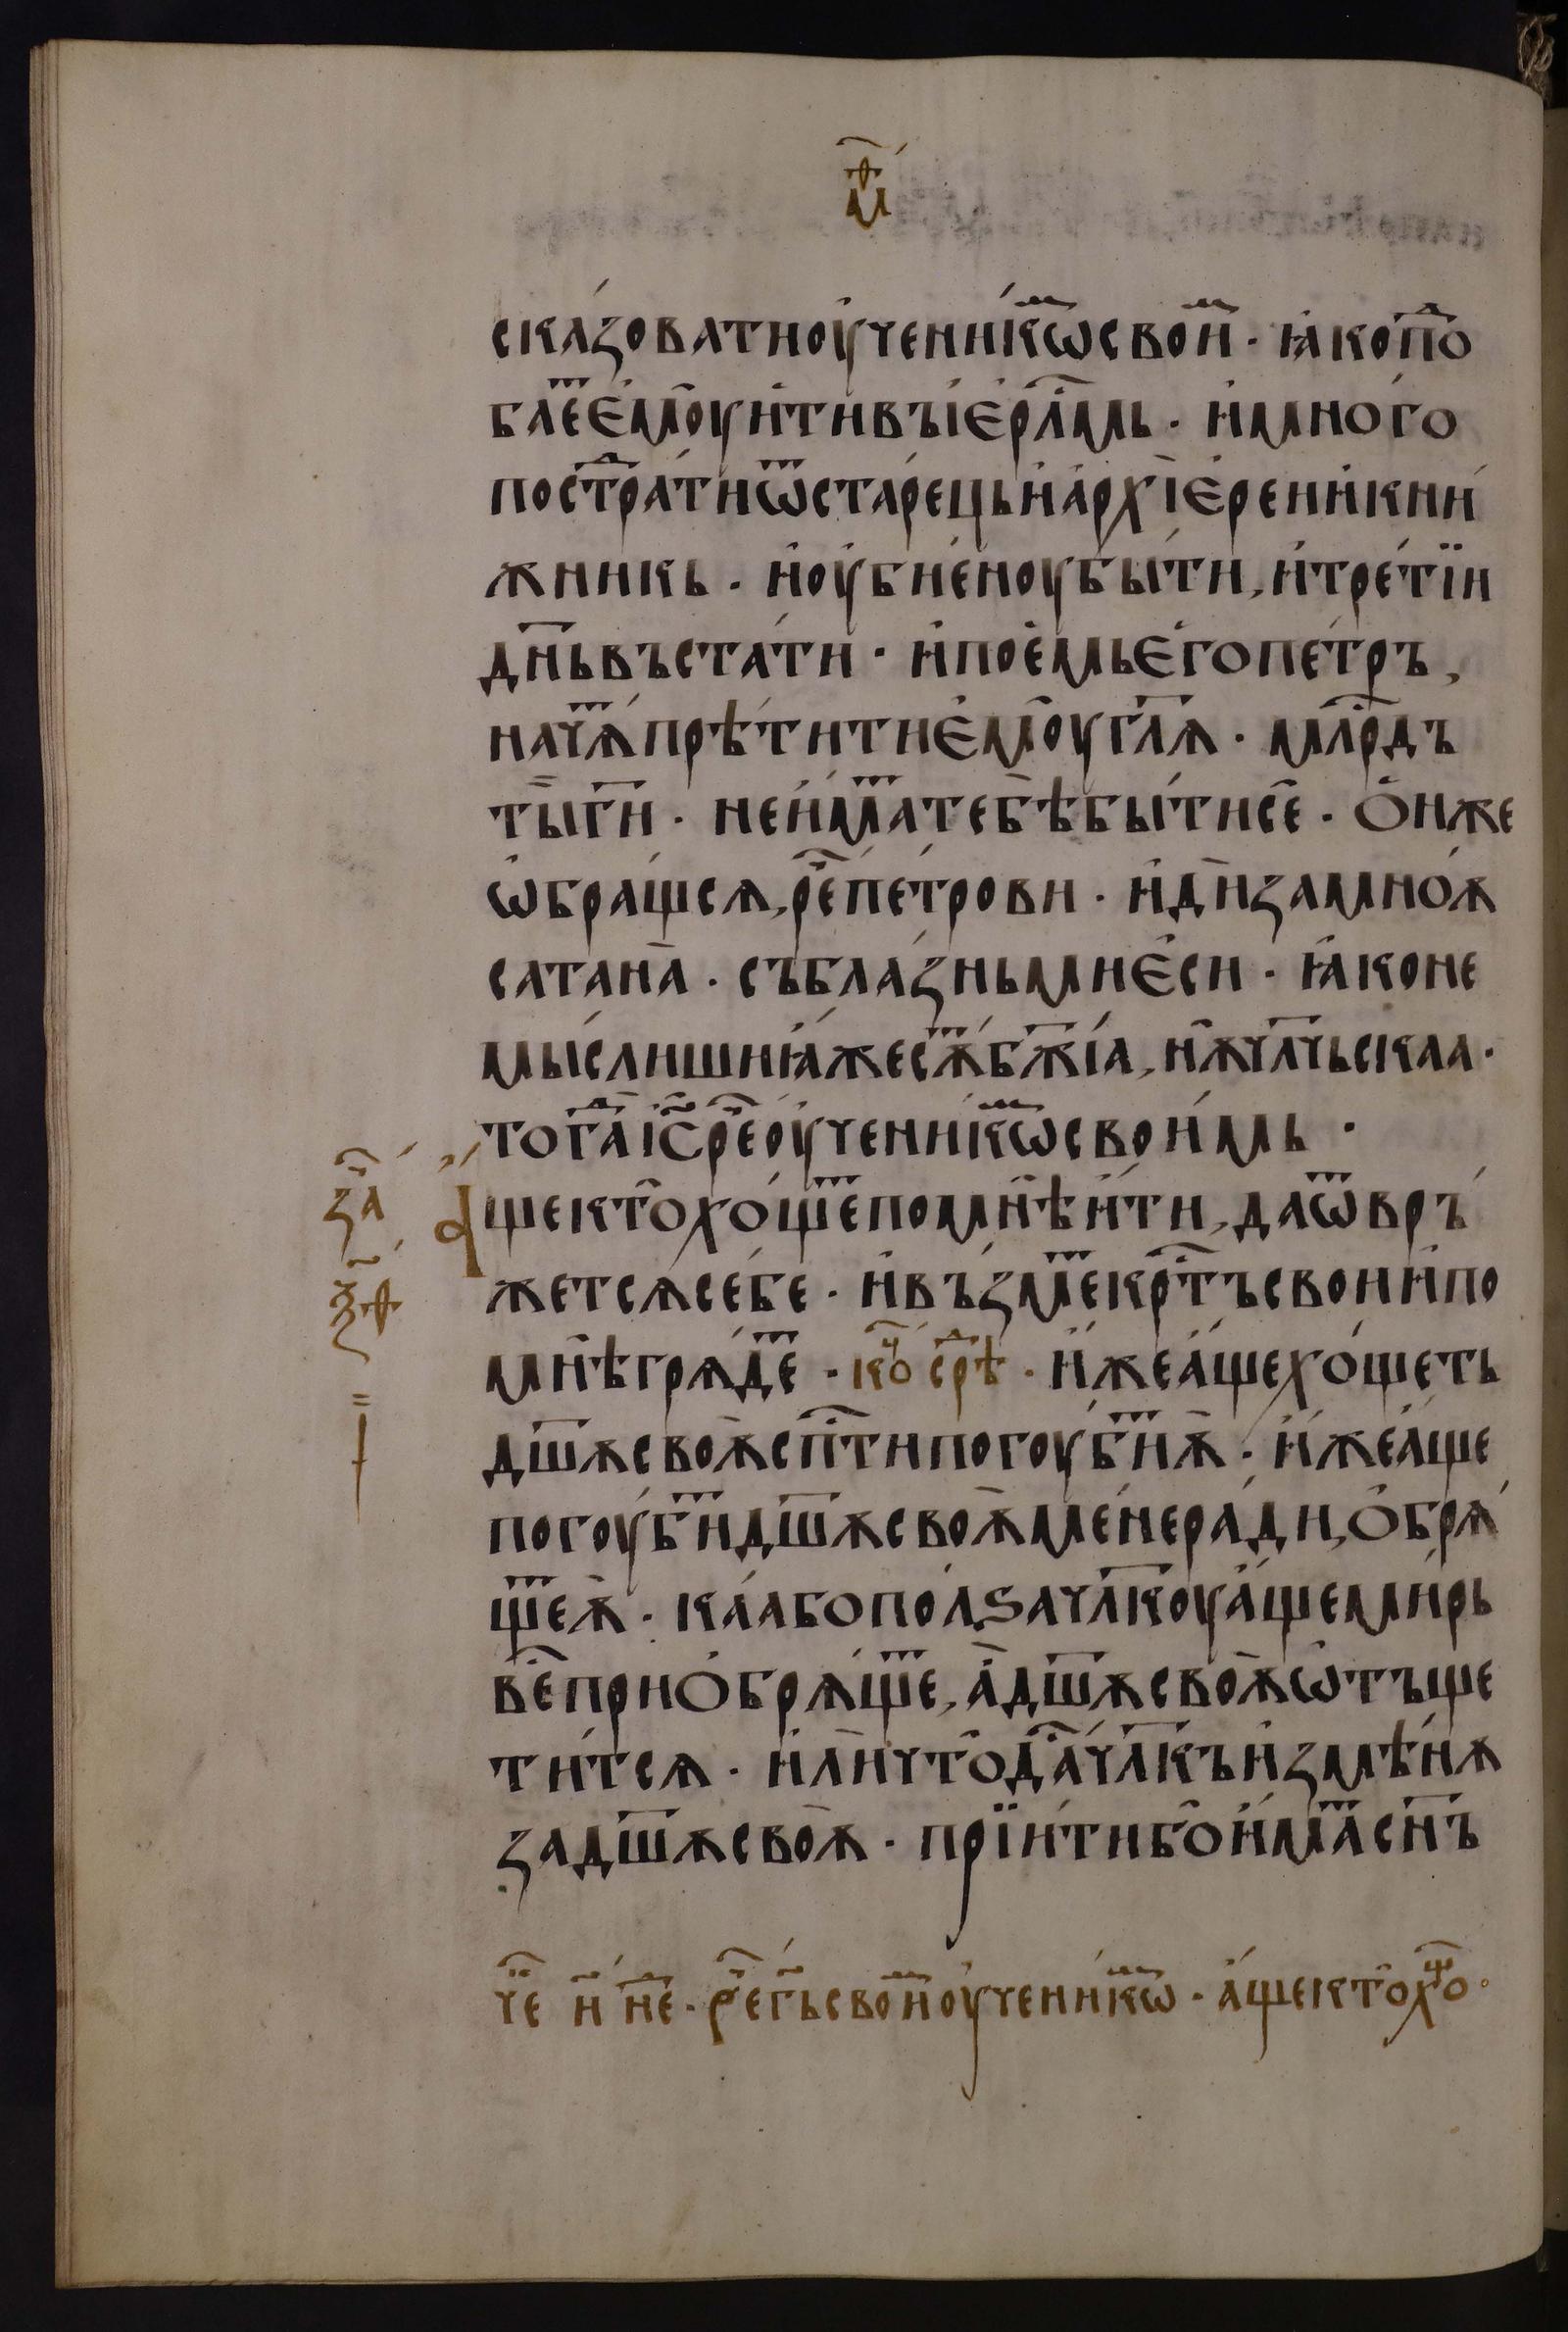 м҃ⷴ
ска́зоватиоу҆чени́кѡⷨ҇свои̑ⷨ · ꙗ҆копоⷣ
баеⷮ҇є҆моу̑и҆тивъі҆є҆рⷭ҇ли́мь · и҆мно́го
постраⷣтиѿⷮстаре́цьи҆а҆рхїє҆рен҆икни́
жникь · и҆оу҆бие́ноубы́ти, и҆тре́тїи
дн҃ьвъста́ти · и҆пое́мьє҆гопе́тръ,
начѧⷮ҇прѣ́титиє҆моу̑гл҃ѧ · млⷭ҇рдъ
ты̏гн҃и · неи҆́маⷮ҇тебѣ̀бы́тисе̑ · ѻ҆́нже
ѡ҆бра́щсѧ, рⷱ҇епе́трови · и҆дѝзамно́ѫ
сатана̀ · събла́зньмиє҆сѝ · ꙗ҆коне
мы́слишиꙗ҆́жесѫⷮ҇бж҃їа, нѫ̑чл҃чьскаа ·
тогⷣаі҆с҃рⷱ҇еоу҆чени́кѡⷨ҇свои́мь ·
за҃ⷱ
А҆́щектѡ̑хо́щеⷮпомнѣ̀и҆тѝ, даѿⷮвръ́
ѯ҃ⷴ
жетсѧсе́бе · и҆въ́змеⷮкрⷭ҇тъсвоии҆по
мнѣ̀грѧде́ⷮ · коⷰ҇ срѣⷣ҇ · и҆́жеа҆́щехо́щеть
дш҃ѫсвоѫ̀сп҃ⷭтипогоу́биⷮѫ̀ · и҆́жеа҆́ще
погоу́биⷮдш҃ѫсвоѫ̀мене́ра́ди, ѻ҆брѧ́
щеⷮѫ̀ · ка́абопо́лѕачл҃коуа҆́щемирь
веⷭ҇приѻ҆брѧ́щеⷮ, а҆̀дш҃ѫсвоѫ̀ѡ҆тъще
ти́тсѧ · и҆лѝчтѡ̑дⷭ҇ачл҃къи҆змѣ́нѫ
задш҃ѫсвоѫ̀ · прїи́тибѡ̑и҆́маⷮсн҃ъ
чⷭ҇е н҃ нⷣе · рⷱ҇егъ҃свои̑ⷨоу҆чени́кѡⷨ · а҆́щектѡ̑хоⷳ ·